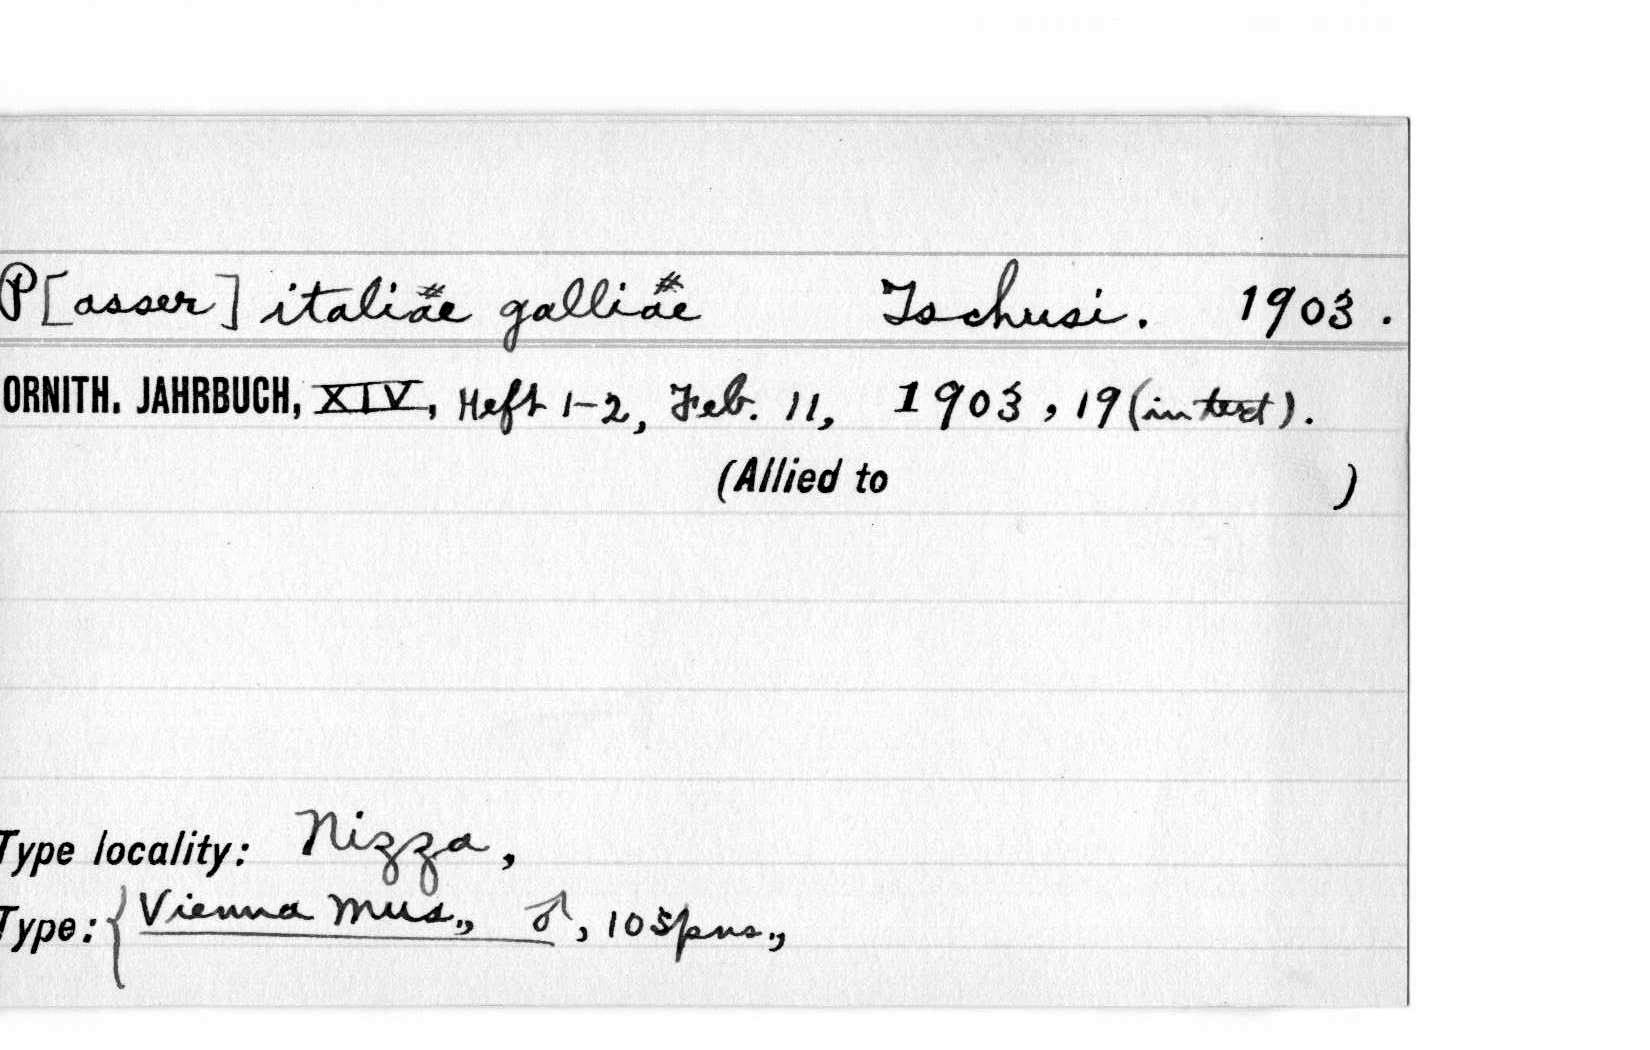 P[asser] italiäe galliäe Tschusi. 1903.
ORNITH. JAHRBUCH, XIV, Heft 1-2, Feb. 11, 1903, 19 (in text).
(Allied to )
Type locality: Nizza,
Type: { Vienna Mus., ♂, 10 spns.,